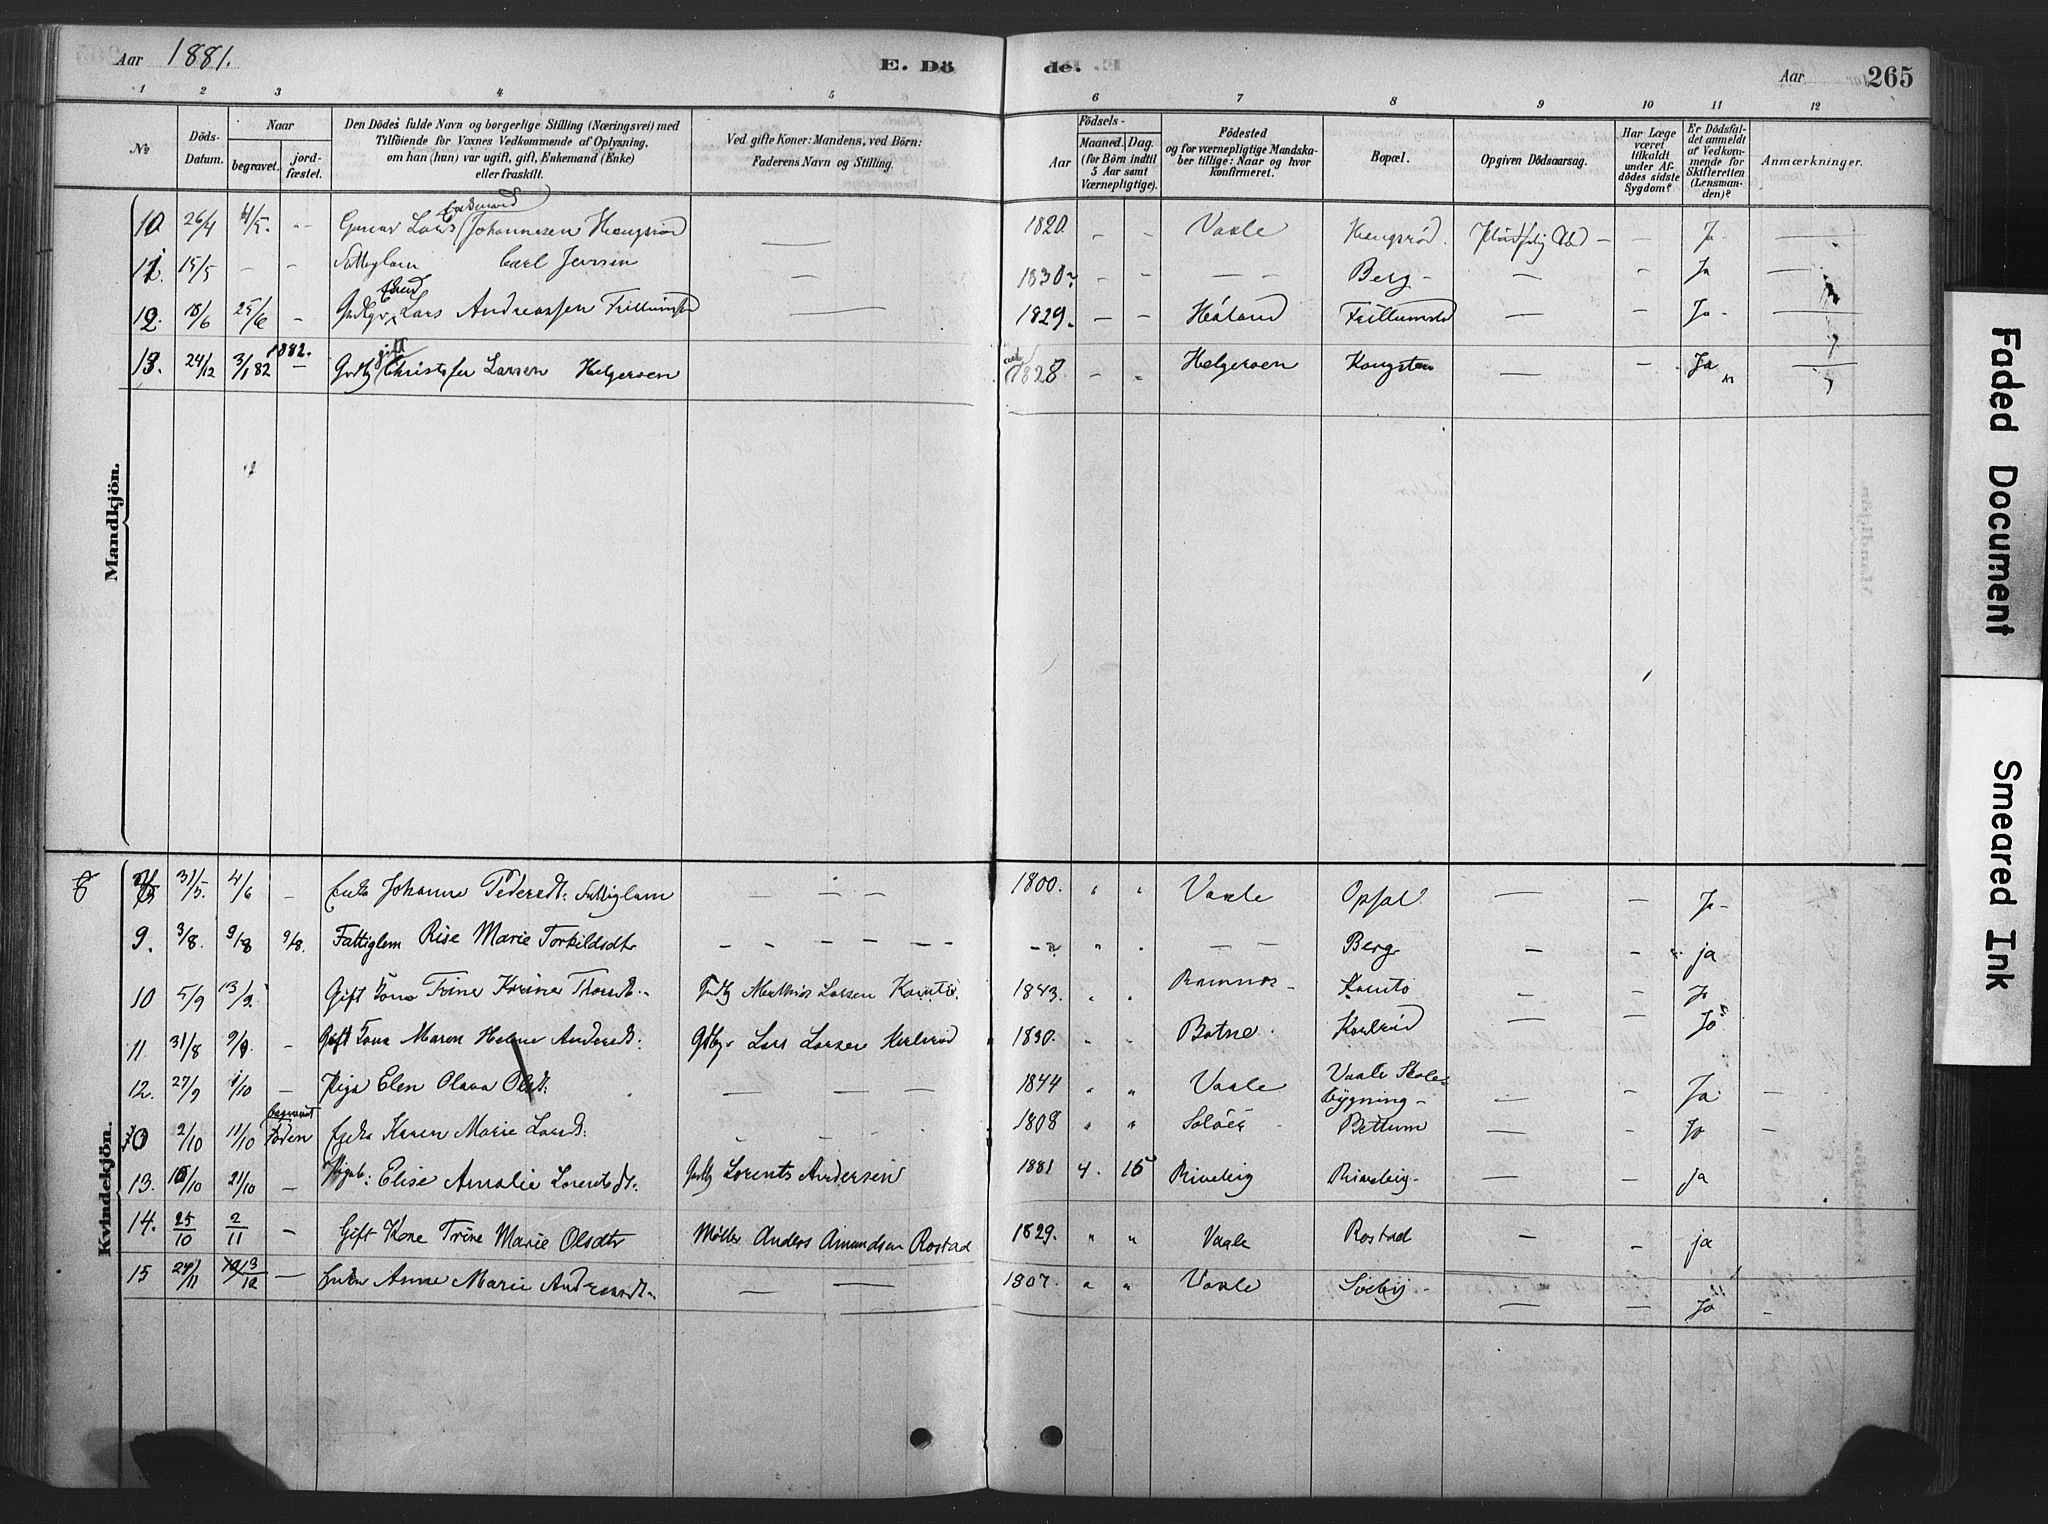 Aar 1881.
E. Dö
de.
Aar
265
1 2 3 4 5 6 7 8 9 10 11 12
No
Döds-
Datum.
Naar
begravet.
jord-
fæstet.
Den Dödes fulde Navn og borgerlige Stilling (Næringsvei) med
Tilföiende for Voxnes Vedkommende af Oplysning,
om han (hun) var ugift, gift, Enkemand (Enke)
eller fraskilt.
Ved gifte Koner: Mandens, ved Börn:
Faderens Navn og Stilling.
Födsels-
Aar
Maaned.
Dag.
(for Börn indtil
5 Aar samt
Værnepligtige).
Födested
og for værnepligtige Mandska-
ber tillige: Naar og hvor
konfirmeret.
Bopæl.
Opgiven Dödsaarsag.
Har Læge
været
tilkaldt
under Af-
dödes sidste
Sygdom?
Er Dödsfal-
det anmeldt
af Vedkom-
mende for
Skifteretten
(Lensman-
den)?
Anmærkninger.
Mandkjön.
Enkemand
10 26/4 4/5 - Lars Johannesen 1820. - - Vaale - Ja
11 15/5 - - Fattiglem Carl Jensen — 1830? - - — Berg - — - Ja —
12. 18/6 25/6 - Lars Andreassen — 1829. - - — - Ja —
1882.
gift
13. 24/12 3/1 82 — Christofer Larsen Helgeroen 1828 - Helgeroen — - Ja —
Kvindekjön.
8 31/5. 4/6 - Enke Johanne Pedersdt. Fattiglem — — — 1800. Vaale Opsal — - Ja
9. 3/8. 9/8 9/8. Fattiglem Rise Marie Torkildsdtr - - - - - - Berg - - ja
10 5/9 13/9. Gift Kone Trine Karine Mathias Larsen 1843. Ramnæs - - - Ja
11. 31/8 9/9 - Gift Kone Maren Helene Andersdt. Lars Larsen 1830. Botne. — - Ja
12. 27/9 1/10 - Pige Elen Olava Olsdt. — — 1844 Vaale Vaale Skole-
bygning - — - Ja -
begravet
2/10 11/10 Enke Karen Marie Larsdt. - - 1808 Soløer - Bettum — - Ja -
13. 16/10 21/10 - Elise Amalie Lorentsdt. Lorents Andersen 1881 4. 15 — - ja
14. 25/10 2/11 - Gift Kone Trine Marie Olsdtr Møller Anders Amundsen Rostad 1829. Vaale Rostad - - ja
15 24/11 13/12 - Enke Anne Marie Andersdt. — — 1807. Vaale — - Ja -
Faded Document
Smeared Ink